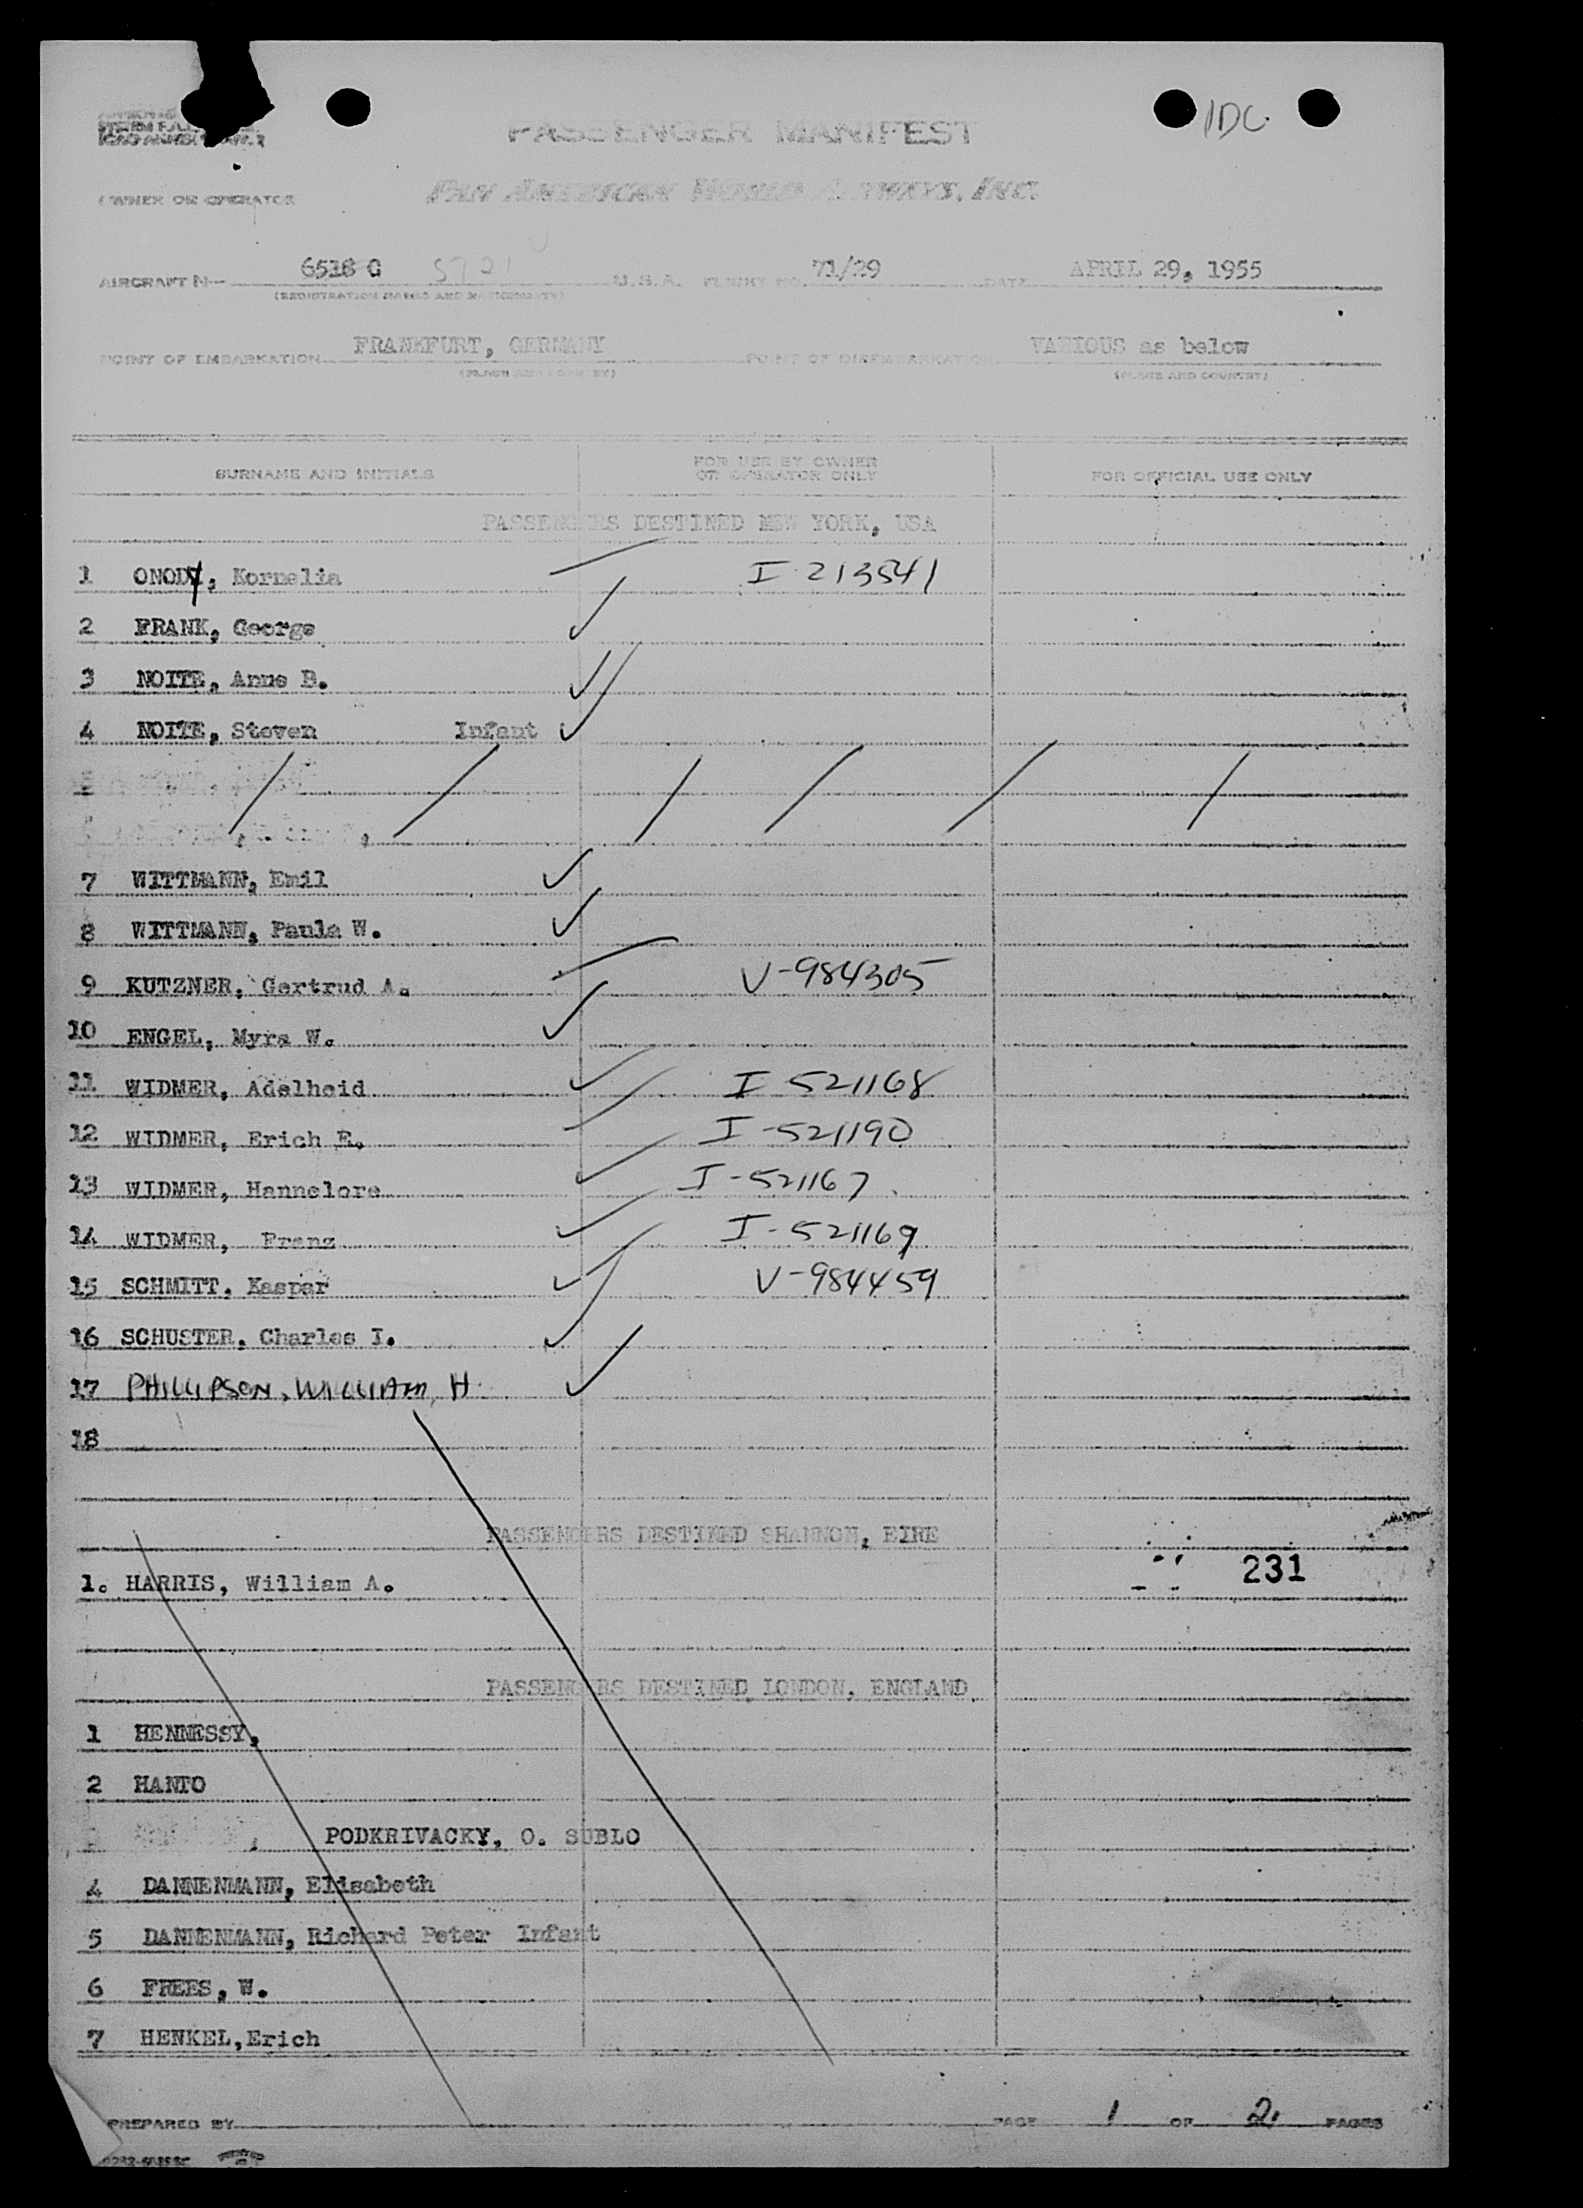 IDC
PASSENGER MANIFEST
OWNER OR OPERATOR PAN AMERICAN WORLD AIRWAYS, INC.
AIRCRAFT N— 6518 C 5721 U.S.A. FLIGHT NO. 71/29 DATE APRIL 29, 1955
(REGISTRATION MARKS AND NATIONALITY)
POINT OF EMBARKATION FRANKFURT, GERMANY POINT OF DISEMBARKATION VARIOUS as below
(PLACE AND COUNTRY) (PLACE AND COUNTRY)
SURNAME AND INITIALS FOR USE BY OWNER OR OPERATOR ONLY FOR OFFICIAL USE ONLY
PASSENGERS DESTINED NEW YORK, USA
1 ONODY, Kornelia I-213541
2 FRANK, George
3 NOITE, Anne B.
4 NOITE, Steven Infant
7 WITTMANN, Emil
8 WITTMANN, Paula W.
9 KUTZNER, Gertrud A. V-984305
10 ENGEL, Myra W.
11 WIDMER, Adelheid I-521168
12 WIDMER, Erich E. I-521190
13 WIDMER, Hannelore I-521167
14 WIDMER, Franz I-521169
15 SCHMITT, Kaspar V-984459
16 SCHUSTER, Charles I.
17 PHILLIPSON, WILLIAM H
18
PASSENGERS DESTINED SHANNON, EIRE
231
1. HARRIS, William A.
PASSENGERS DESTINED LONDON, ENGLAND
1 HENNESSY,
2 HANTO
PODKRIVACKY, O. SUBLO
4 DANNENMANN, Elisabeth
5 DANNENMANN, Richard Peter Infant
6 FREES, W.
7 HENKEL, Erich
PREPARED BY PAGE 1 OF 2 PAGES